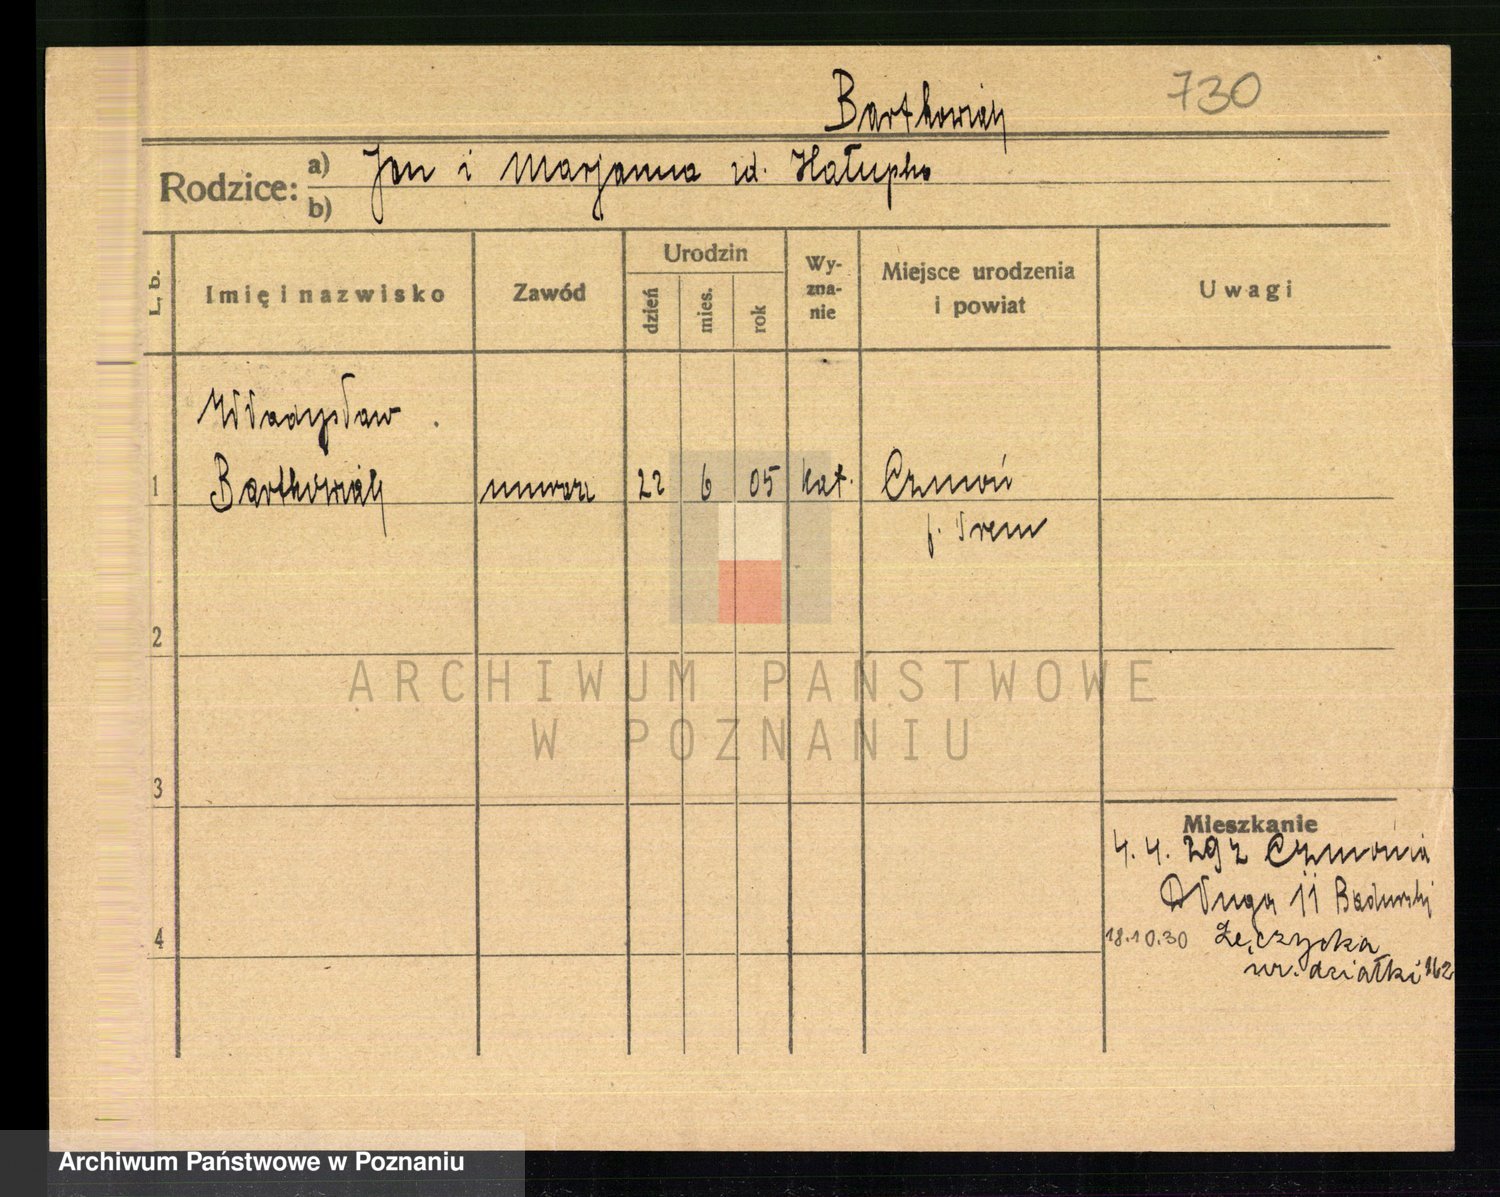 Bartkowiak 730
Rodzice: a) Jan i Marjanna zd. Hałupka
b)
L. b.
Imię i nazwisko
Zawód
Urodzin
dzień
mies.
rok
Wy-
zna-
nie
Miejsce urodzenia
i powiat
Uwagi
Władysław
1 Bartkowiak murarz 22 6 05 kat. Czmoń
p. Śrem
2
ARCHIWUM PAŃSTWOWE
W POZNANIU
3
Mieszkanie
4. 4. 29 z Czmonia
Długa 11 Badurski
4
18.10.30 Łęczycka
nr. działki 162
Archiwum Państwowe w Poznaniu